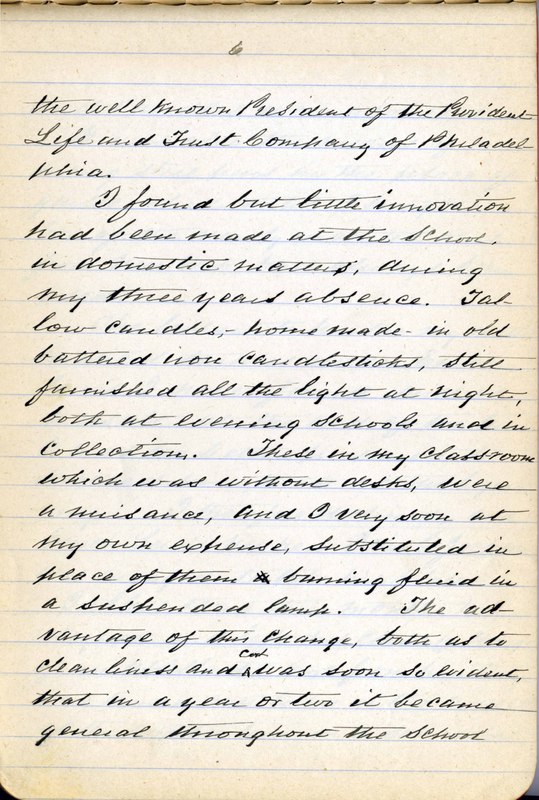 6
the well known President of the Provident
Life and Trust Company of Philadel-
phia.
I found but little innovation
had been made at the School,
in domestic matters, during
my three years absence. Tal-
low candles,- home made- in old
battered iron candlesticks, still
furnished all the light at night,
both at evening schools and in
collection. These in my classroom
which was without desks, were
a nuisance, and I very soon at
my own expense, substituted in
place of them burning fluid in
a suspended lamp. The ad-
vantage of this change, both as to
cleanliness and cost was soon so evident,
that in a year or two it became
general throughout the School